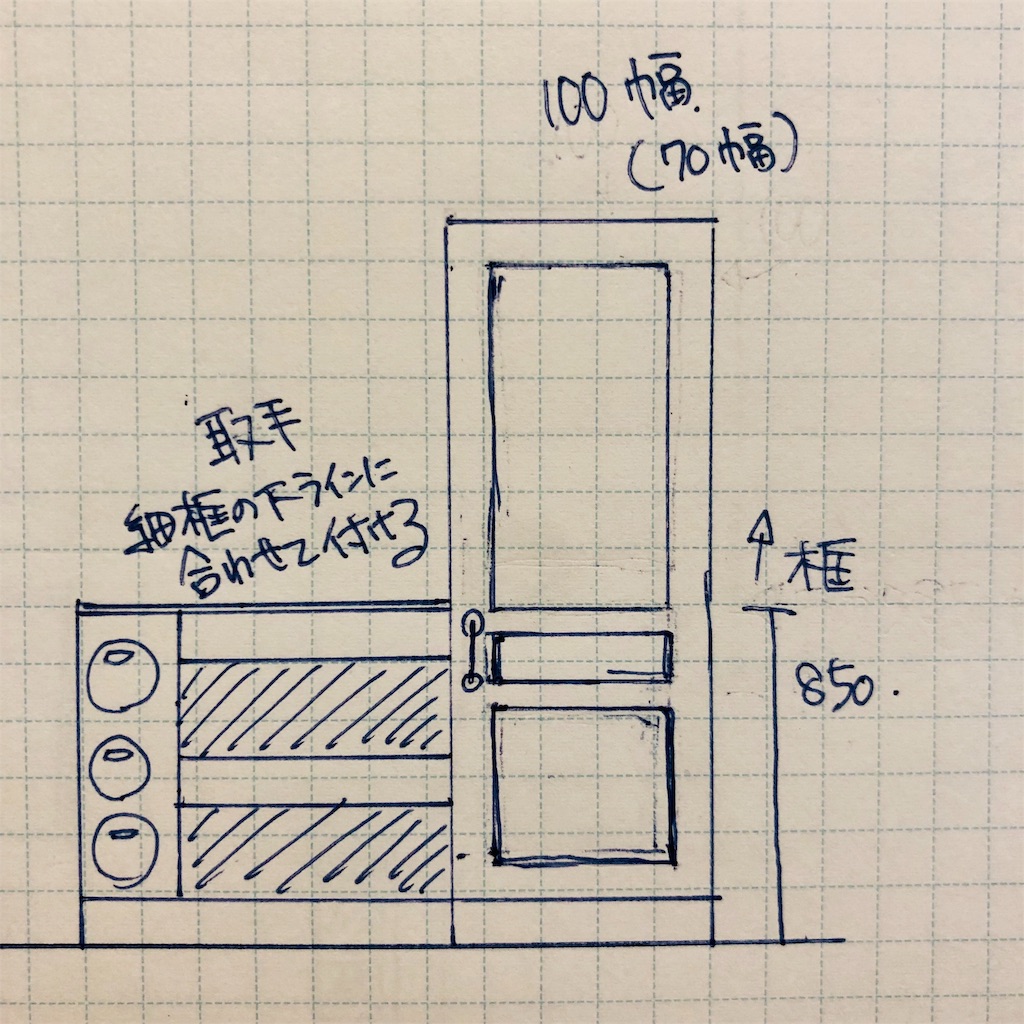 100 幅.
(70幅)
取手
細框の下ラインに
合わせて付ける
框
850.